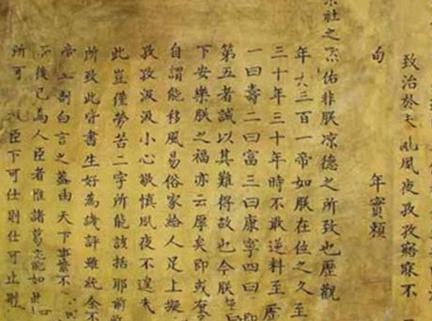 致治於未亂夙夜孜孜寤寐不
旬 年實賴
宗社之默佑非朕涼德之所致也歷觀
年 三百一帝如朕在位之久至
三十年三十年時不敢逆料至
一曰壽二曰富三曰康寧四曰
第五者誠以其難得故也今朕
下安樂朕之福亦云厚矣即或有
自謂能移風易俗家給人足上擬
孜孜汲汲小心敬慎夙夜不遑
此豈僅勞苦二字所能該括耶前
所致此皆書生好為譏評雖純全
帝王剖白言之蓋由天下事繁不
後已為人臣者惟諸葛亮能如此
所可 臣下可仕則仕可止則